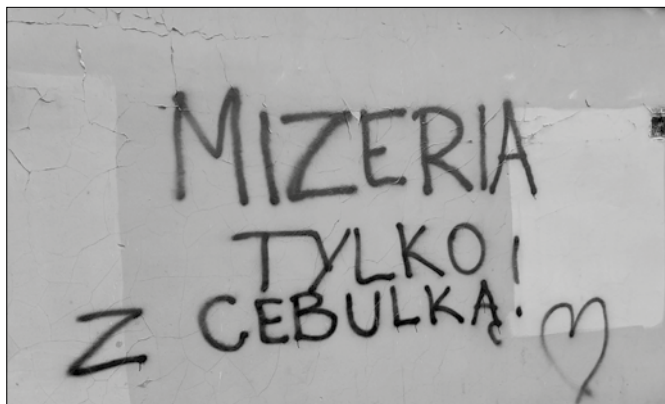 MIZERIA
TYLKO
Z CEBULKĄ!